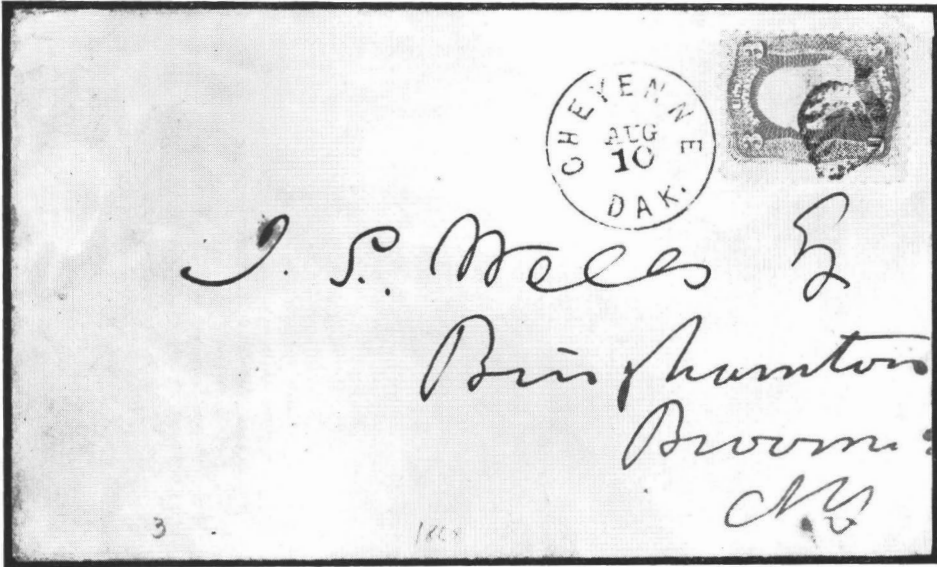 CHEYENNE
AUG
10
DAK.
J. S. Wells
Binghamton
Broome
NY
3